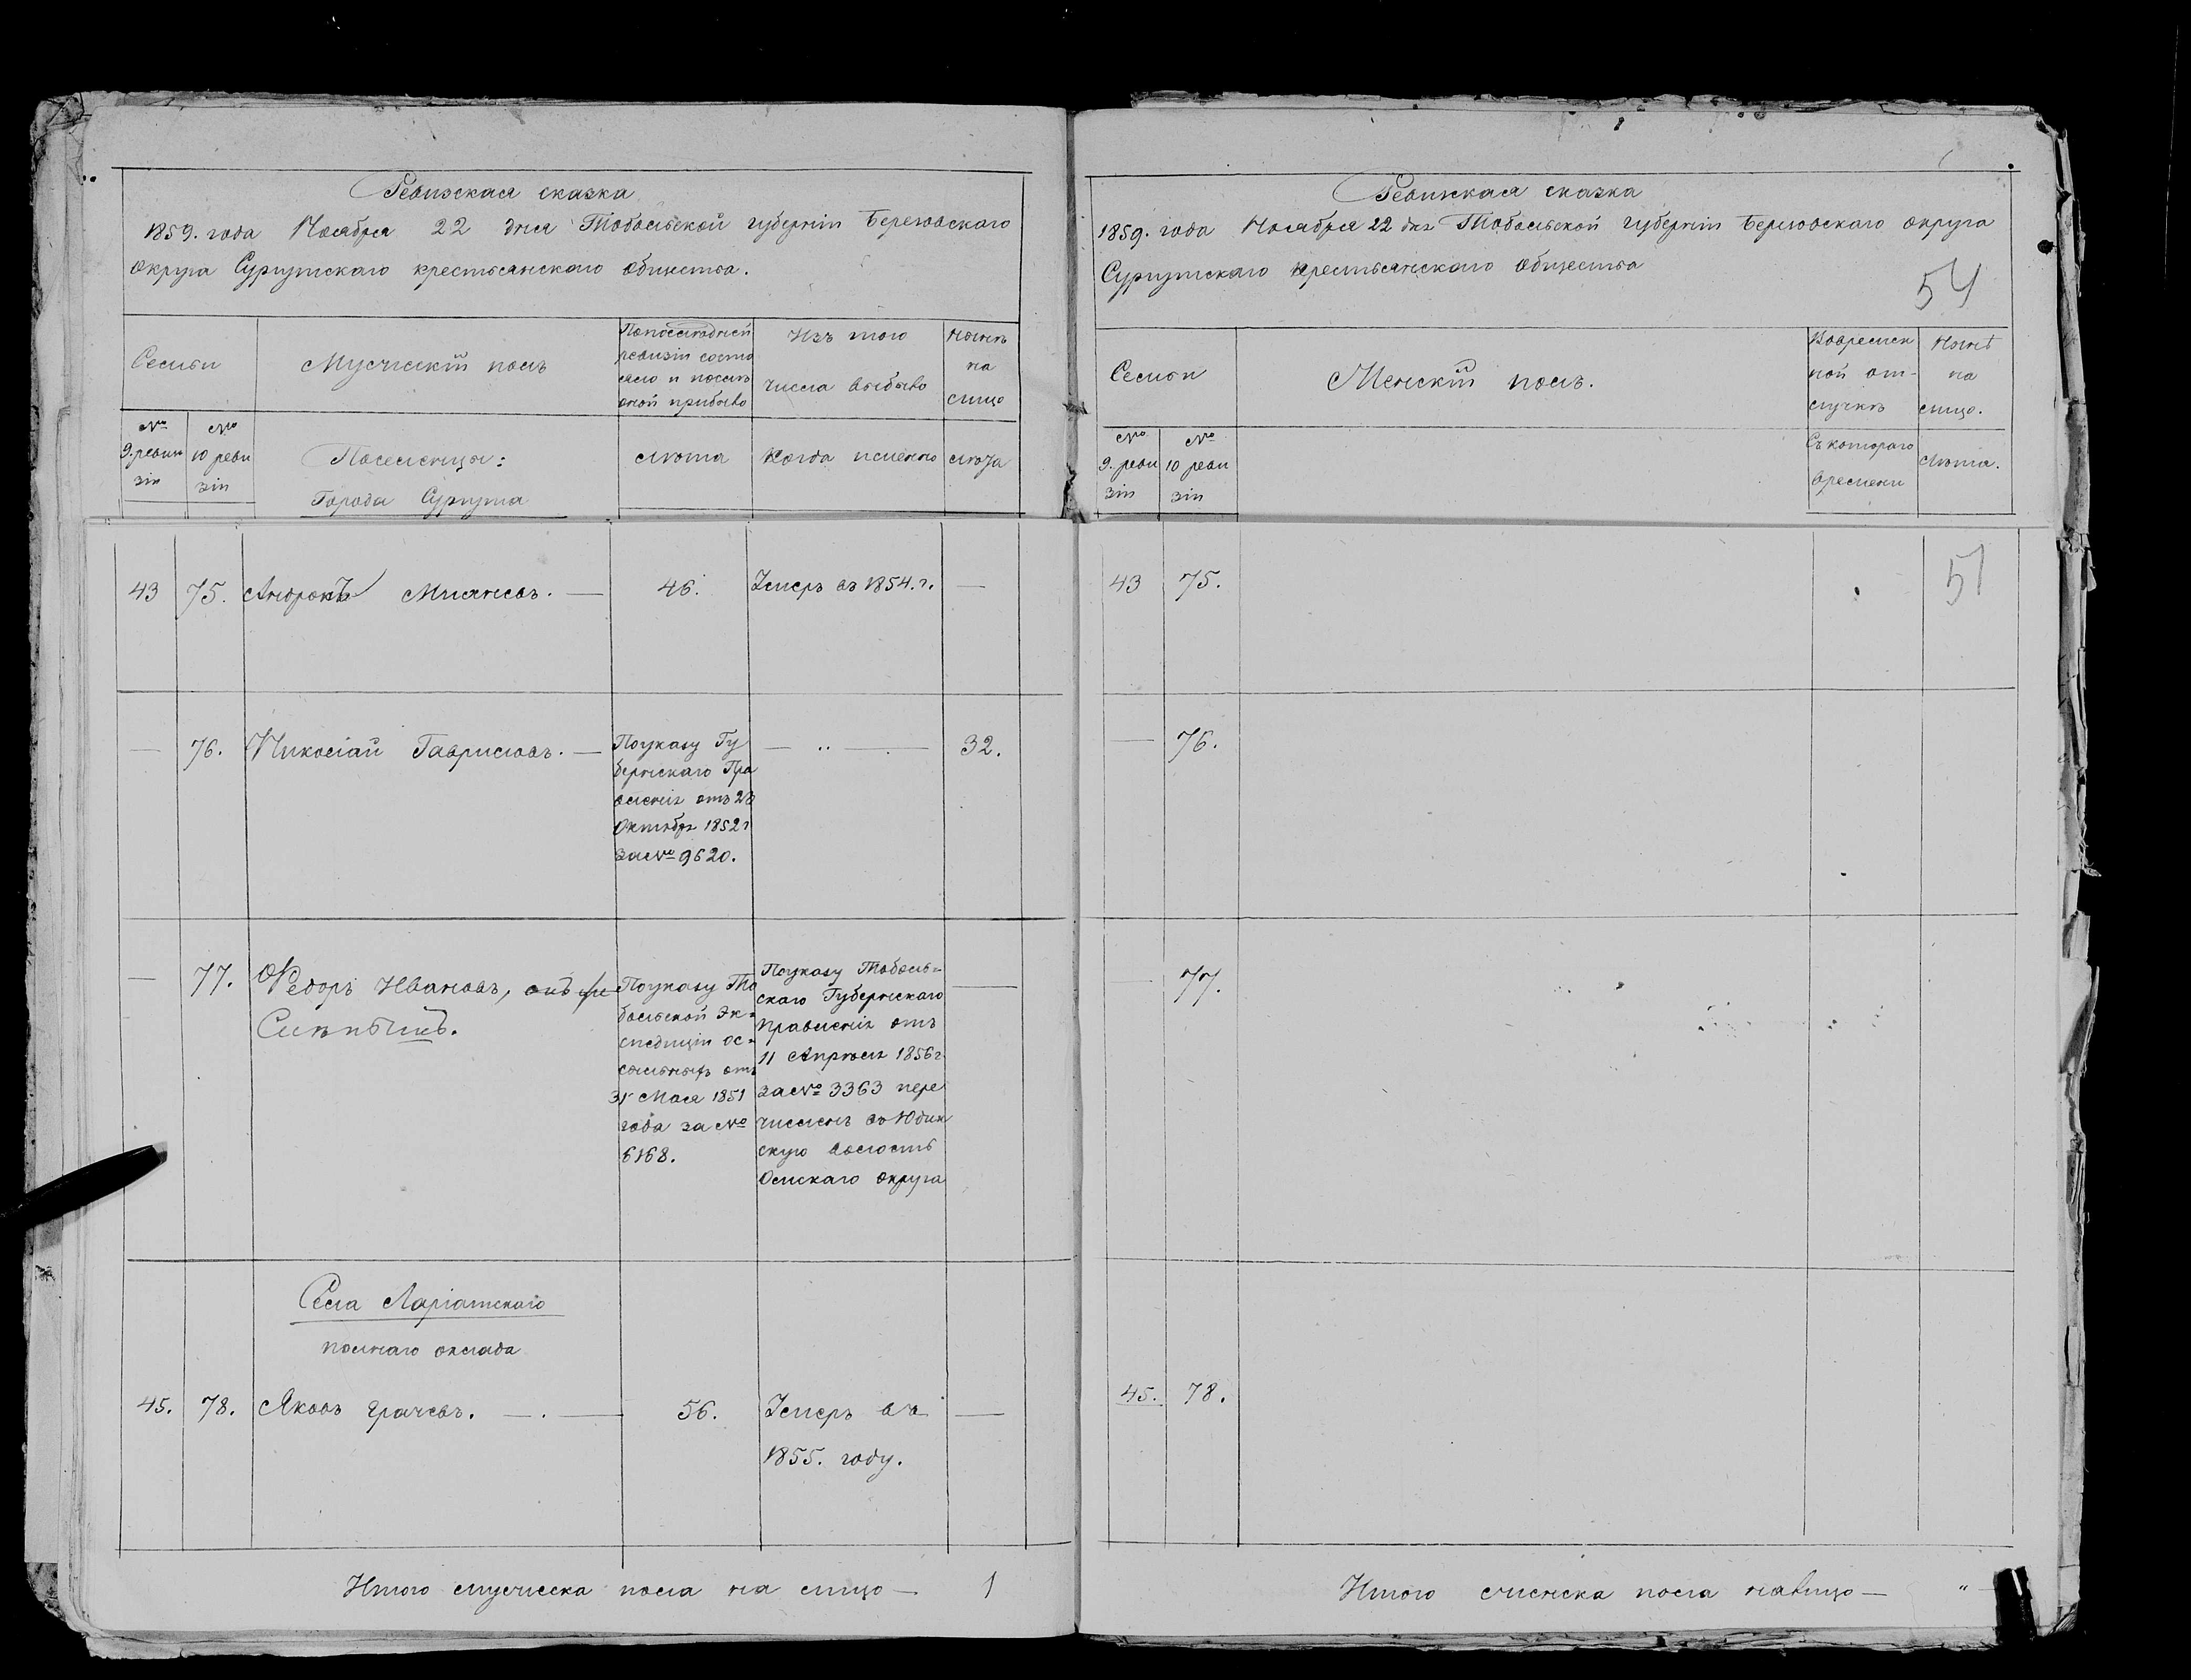 Ревизская сказка
1859. года Ноября 22 дня Тобольской губернiи Березовскаго
округа Сургутскаго крестьянскаго общества.
Семьи
Мужескiй полъ
Попоследней
ревизiи состо
яло и после
оной прибыло
Изъ того
числа выбыло
Ныне
на
лицо
№
9. реви
зiи
№
10 реви
зiи
Поселенцы:
Города Сургута
лѣта
Когда именно
лѣта
43 75. Миляевъ. — 46. Умеръ въ 1854. г. —
— 76. Николай Гавриловъ. — Поуказу Гу
бернскаго Пра
вленiя отъ 23
Октября 1852 г
за № 9620.
— 32.
— 77. Ѳедоръ Ивановъ, онъ же
Слѣпышъ.
Поуказу То
больской Эк=
спедицiи ос=
сыльныхъ отъ
31 Мая 1851
года за №
6168.
Поуказу Тоболь=
скаго Губернскаго
Правленiя отъ
11 Апрѣля 1856 г
за № 3363 пере
численъ въ Юдин
скую волость
Омскаго округа
—
Села Ларiатскаго
полнаго оклада
45. 78. Яковъ Грачевъ. — 56. Умеръ въ
1855. году.
—
Итого мужеска пола на лицо — 1
Ревизская сказка
1859. года Ноября 22 дня Тобольской губернiи Березовскаго округа
Сургутскаго крестьянскаго общества
54
Семьи
Женскiй полъ.
Вовремен
ной от-
лучкѣ
Ныне
на
лицо.
№
9. реви
зiи
№
10 реви
зiи
Съ котораго
времени
лѣта.
43 75.
51
— 76.
— 77.
45. 78.
Итого женска пола налицо — "